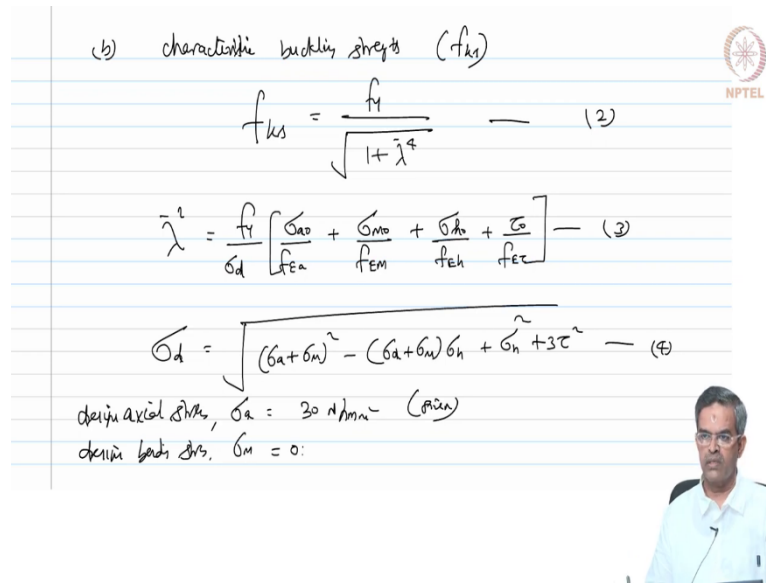 (b) characteristic buckling strength (fks)
NPTEL
fks = fy / √(1 + λ̄⁴) — (2)
λ̄² = fy/σd [σao/fEa + σmo/fEm + σho/fEh + τo/fEτ] — (3)
σd = √((σa+σm)² − (σa+σm)σh + σh² + 3τ²) — (4)
design axial stress, σa = 30 N/mm² (given)
design bendi stress, σm = 0: